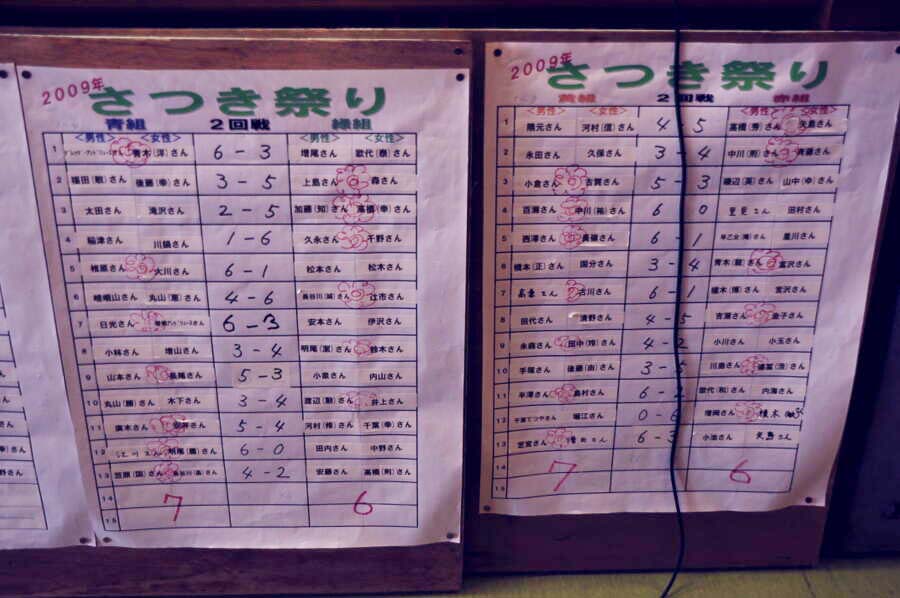 2009年
さつき祭り
青組 2回戦 緑組
<男性> <女性> <男性> <女性>
1 青木(洋)さん 6-3 増尾さん 歌代(泰)さん
2 福田(敏)さん 後藤(幸)さん 3-5 上島さん 森さん
3 太田さん 滝沢さん 2-5 加藤(知)さん 高橋(幸)さん
4 稲津さん 川鍋さん 1-6 久永さん 千野さん
5 椎原さん 大川さん 6-1 松本さん 松木さん
6 嵯峨山さん 丸山(恵)さん 4-6 長谷川(誠)さん 辻市さん
7 日光さん 6-3 安本さん 伊沢さん
8 小林さん 増山さん 3-4 明尾(潔)さん 鈴木さん
9 山本さん 長尾さん 5-3 小泉さん 内山さん
10 丸山(勝)さん 木下さん 3-4 渡辺(聡)さん 井上さん
11 廣木さん 安井さん 5-4 河村(修)さん 千葉(幸)さん
12 江川さん 明尾(麗)さん 6-0 田内さん 中野さん
13 笠原(国)さん 長谷川(晶)さん 4-2 安藤さん 高橋(則)さん
14
15
7 6
2009年
さつき祭り
黄組 2回戦 赤組
<男性> <女性> <男性> <女性>
1 隅元さん 河村(信)さん 4 5 高橋(秀)さん 矢島さん
2 永田さん 久保さん 3-4 中川(則)さん 斉藤さん
3 小倉さん 古賀さん 5-3 渡辺(英)さん 山中(幸)さん
4 百瀬さん 中川(祐)さん 6 0 里見さん 田村さん
5 西澤さん 長嶺さん 6-1 早乙女(隆)さん 星川さん
6 橋本(正)さん 国分さん 3-4 青木(龍)さん 富沢さん
7 高桑さん 古川さん 6-1 植木(博)さん 宮沢さん
8 田代さん 清野さん 4-5 吉瀬さん 金子さん
9 永森さん 田中(玲)さん 4-2 小川さん 小玉さん
10 手塚さん 後藤(由)さん 3-5 川島さん
11 半澤さん 島村さん 6-2 歌代(和)さん 内海さん
12 千葉てつやさん 堀江さん 0-6 増岡さん
13 芝宮さん 6-3 小池さん 矢島さん
14
15
7 6